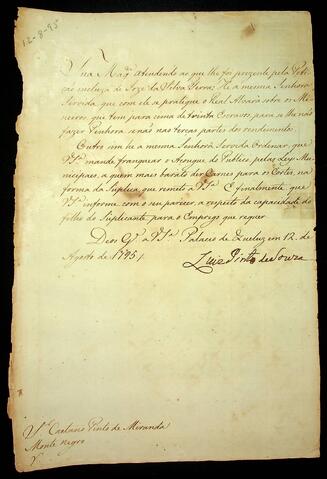 12-8-95
Sua Mag.e attendendo ao que lhe foi prezente pela Peti-
ção incluza de Joze da Silva Serra: He a mesma Senhora
Servida que com ele se pratique o Real Alvará sobre os Mi-
neiros que tem para cima de trinta Escravos, para se lhe não
fazer Penhora senão nas terças partes dos rendimentos.
Outro sim he a mesma Senhora Servida Ordenar que
V.S.a mande franquear o Açougue do Publico, pelas Leys Mu-
nicipaes, a quem mais barato der Carnes para os Cortes, na
forma da Suplica, que remeto a V.S.a E finalmente que
V.S.a informe, com o seu parecer, a respeito da capacidade do
filho do Suplicante, para o Emprego que requer.
Deos G.e a V.S.a Palacio de Queluz em 12. de
Agosto de 1795,
Luiz Pinto de Souza
S.r Caetano Pinto de Miranda
Monte negro